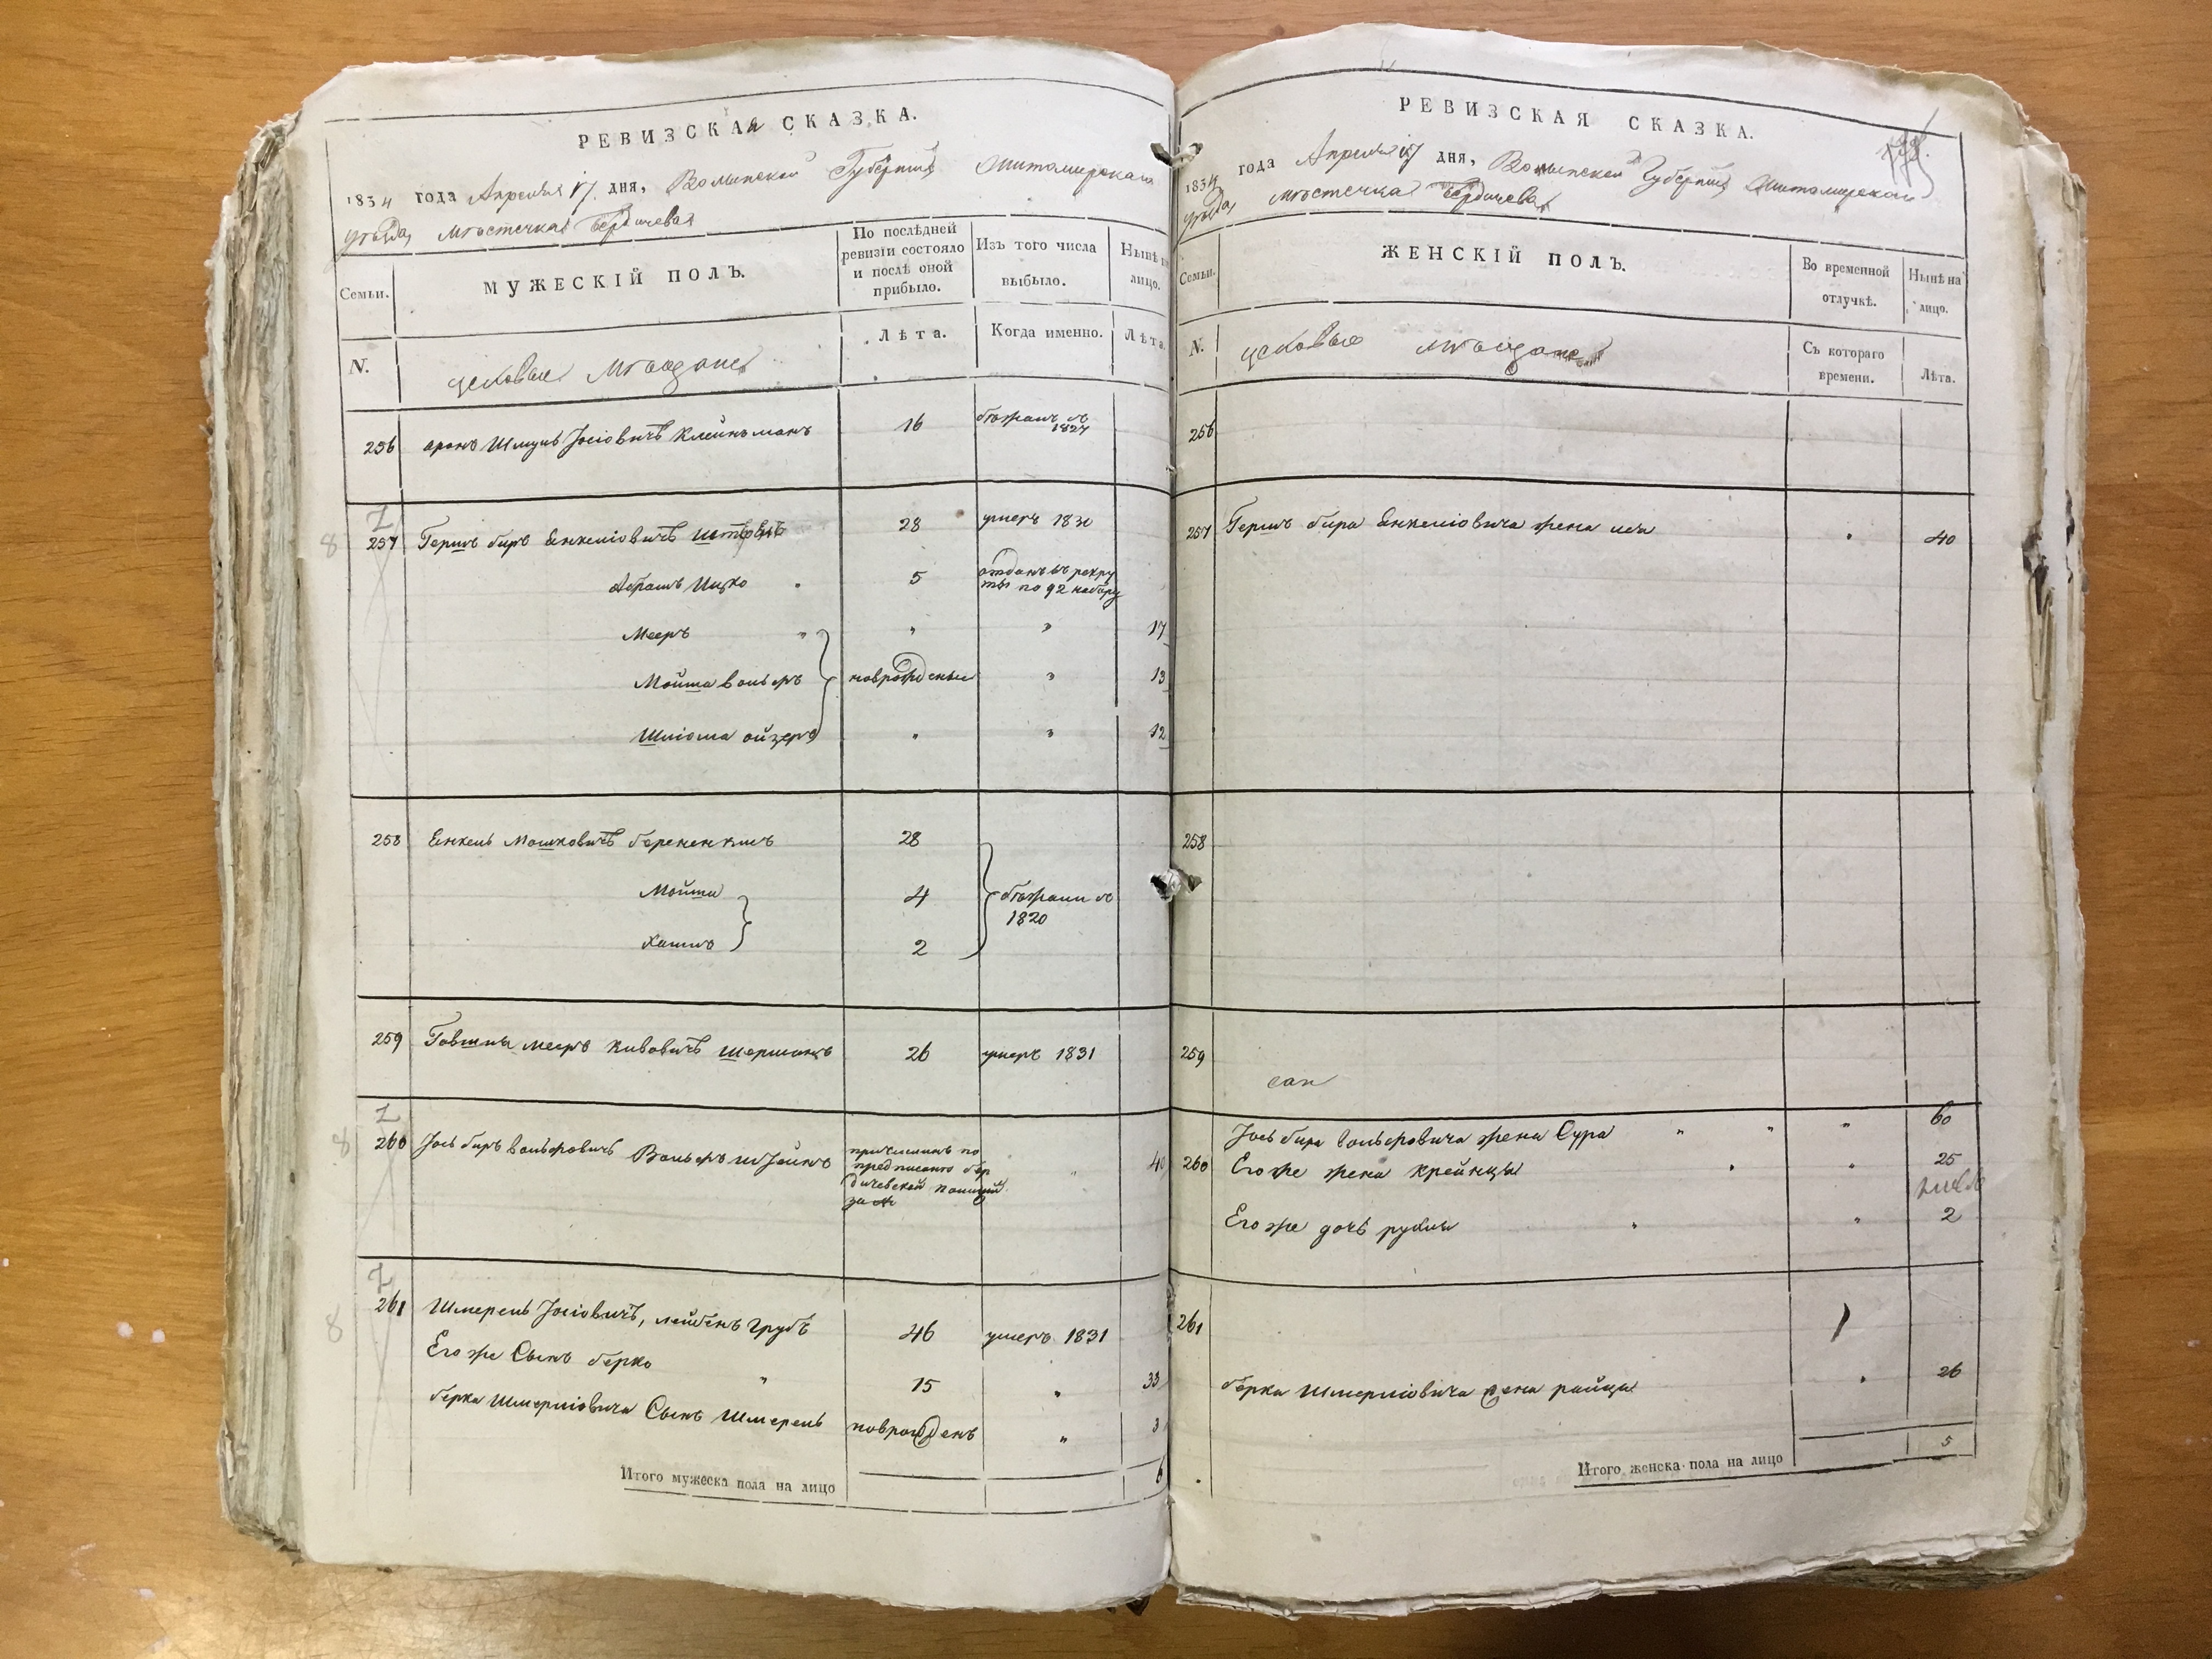 РЕВИЗСКАЯ СКАЗКА.
1834 года Апреля 17 дня, Волынской Губерніи Житомирскаго
уѣзда, мѣстечка Бердичева
Семьи.
МУЖЕСКІЙ ПОЛЪ.
По послѣдней ревизіи состояло и послѣ оной прибыло.
Изъ того числа выбыло.
Нынѣ на лицо.
N.
мѣщане
Лѣта.
Когда именно.
Лѣта.
256 Аронъ Шмуль Іосіовичъ Клейнъманъ 16 бѣжалъ въ 1827
257 Гершъ беръ Енкеліовичъ 28 умеръ 1830
Абрамъ Ицко 5 отданъ въ рекруты по 92 набору
Мееръ " " 17
Мойша вольфъ новорожденые " 13
Шліома ойзеръ " " 12
258 Енкель Мошковичъ 28
Мойша 4 бѣжали въ 1820
Хаимъ 2
259 Мееръ Кивовичъ Шерманъ 26 умеръ 1831
260 Іось беръ Вольфовичъ причисленъ по предписанію бердичевской полиціи " 40
261 Шмерель Іосіовичъ, 46 умеръ 1831
Его же Сынъ берко " 15 " 33
берка Шмерліовича Сынъ Шмерель новорожденъ " 3
Итого мужеска пола на лицо 6
РЕВИЗСКАЯ СКАЗКА.
1834 года Апреля 17 дня, Волынской Губерніи Житомирскаго
уѣзда, мѣстечка Бердичева
Семьи.
ЖЕНСКІЙ ПОЛЪ.
Во временной отлучкѣ.
Нынѣ на лицо.
N.
мѣщане
Съ котораго времени.
Лѣта.
256
257 Гершъ бера Енкеліовича жена 40
258
259
Іось бера Вольфовича жена Сура " " " 60
260 Его же жена Крейнцы " " 25
Его же дочь рухля " " 2
261
берка Шмерліовича жена райца " 26
5
Итого женска пола на лицо